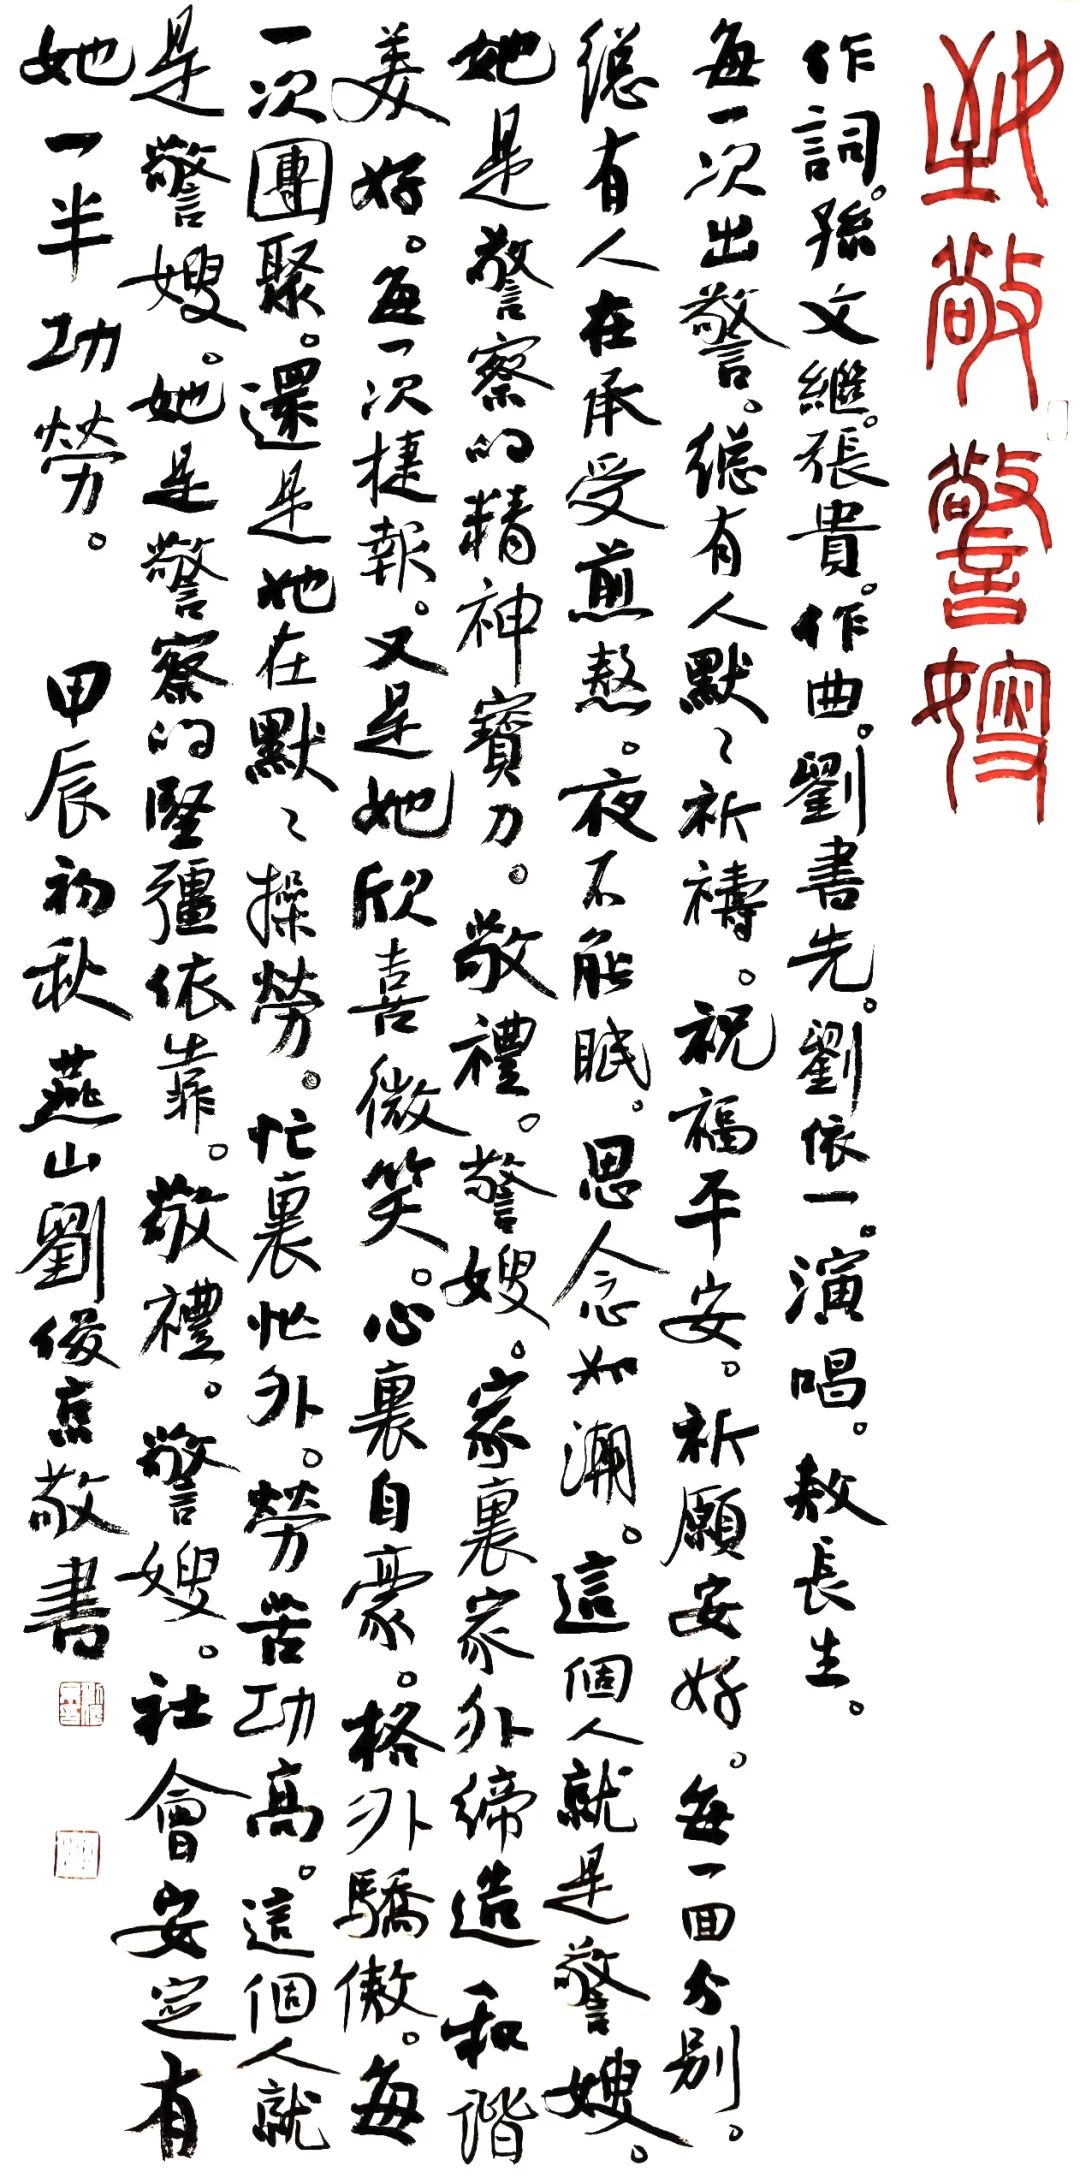 致敬警嫂
作詞。孫文繼。張貴。作曲。劉書先。劉依一。演唱。敖長生。
每一次出警。總有人默〻祈禱。祝福平安。祈願安好。每一回分別。
總有人在承受煎熬。夜不能眠。思念如潮。這個人就是警嫂。
她是警察的精神寶刀。敬禮。警嫂。家裏家外締造和諧
美好。每一次捷報。又是她欣喜微笑。心裏自豪。格外驕傲。每
一次團聚。還是她在默〻操勞。忙裏忙外。勞苦功高。這個人就
是警嫂。她是警察的堅彊依靠。敬禮。警嫂。社會安定有
她一半功勞。 甲辰初秋 燕山劉俊京敬書